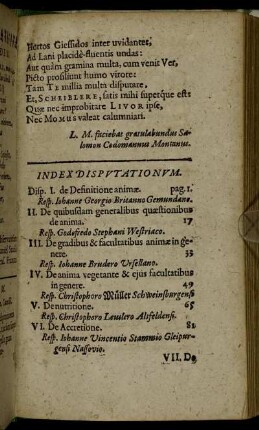 Hortos Giessidos inter uvidantes,
Ad Lani placidè-fluentis undas:
Aut quàm gramina multa, cum venit Ver,
Picto prosiliunt humo virore:
Tam TE millia multa disputare,
Et, SCHEIBLERE, satis mihi superque est:
Quæ nec improbitare LIVOR ipse,
Nec MOMUS valeat calumniari.
L. M. faciebat gratulabundus Sa-
lomon Codomannus Montanus.
INDEX DISPUTATIONUM.
Disp. I. de Definitione animæ. pag. 1.
Resp. Iohanne Georgio Britanno Gemundano.
II. De quibusdam generalibus quæstionibus
de anima. 17
Resp. Godefredo Stephani Westriaco.
III. De gradibus & facultatibus animæ in ge-
nere. 33
Resp. Iohanne Brudero Ursellano.
IV. De anima vegetante & ejus facultatibus
in genere. 49
Resp. Christophoro Müller Schweinsburgensi
V. De nutritione. 65
Resp. Christophoro Lauilero Alsfeldensi.
VI. De Accretione. 81
Resp. Iohanne Vincentio Stammio Gleipur-
gensi Nassovio.
VII. De